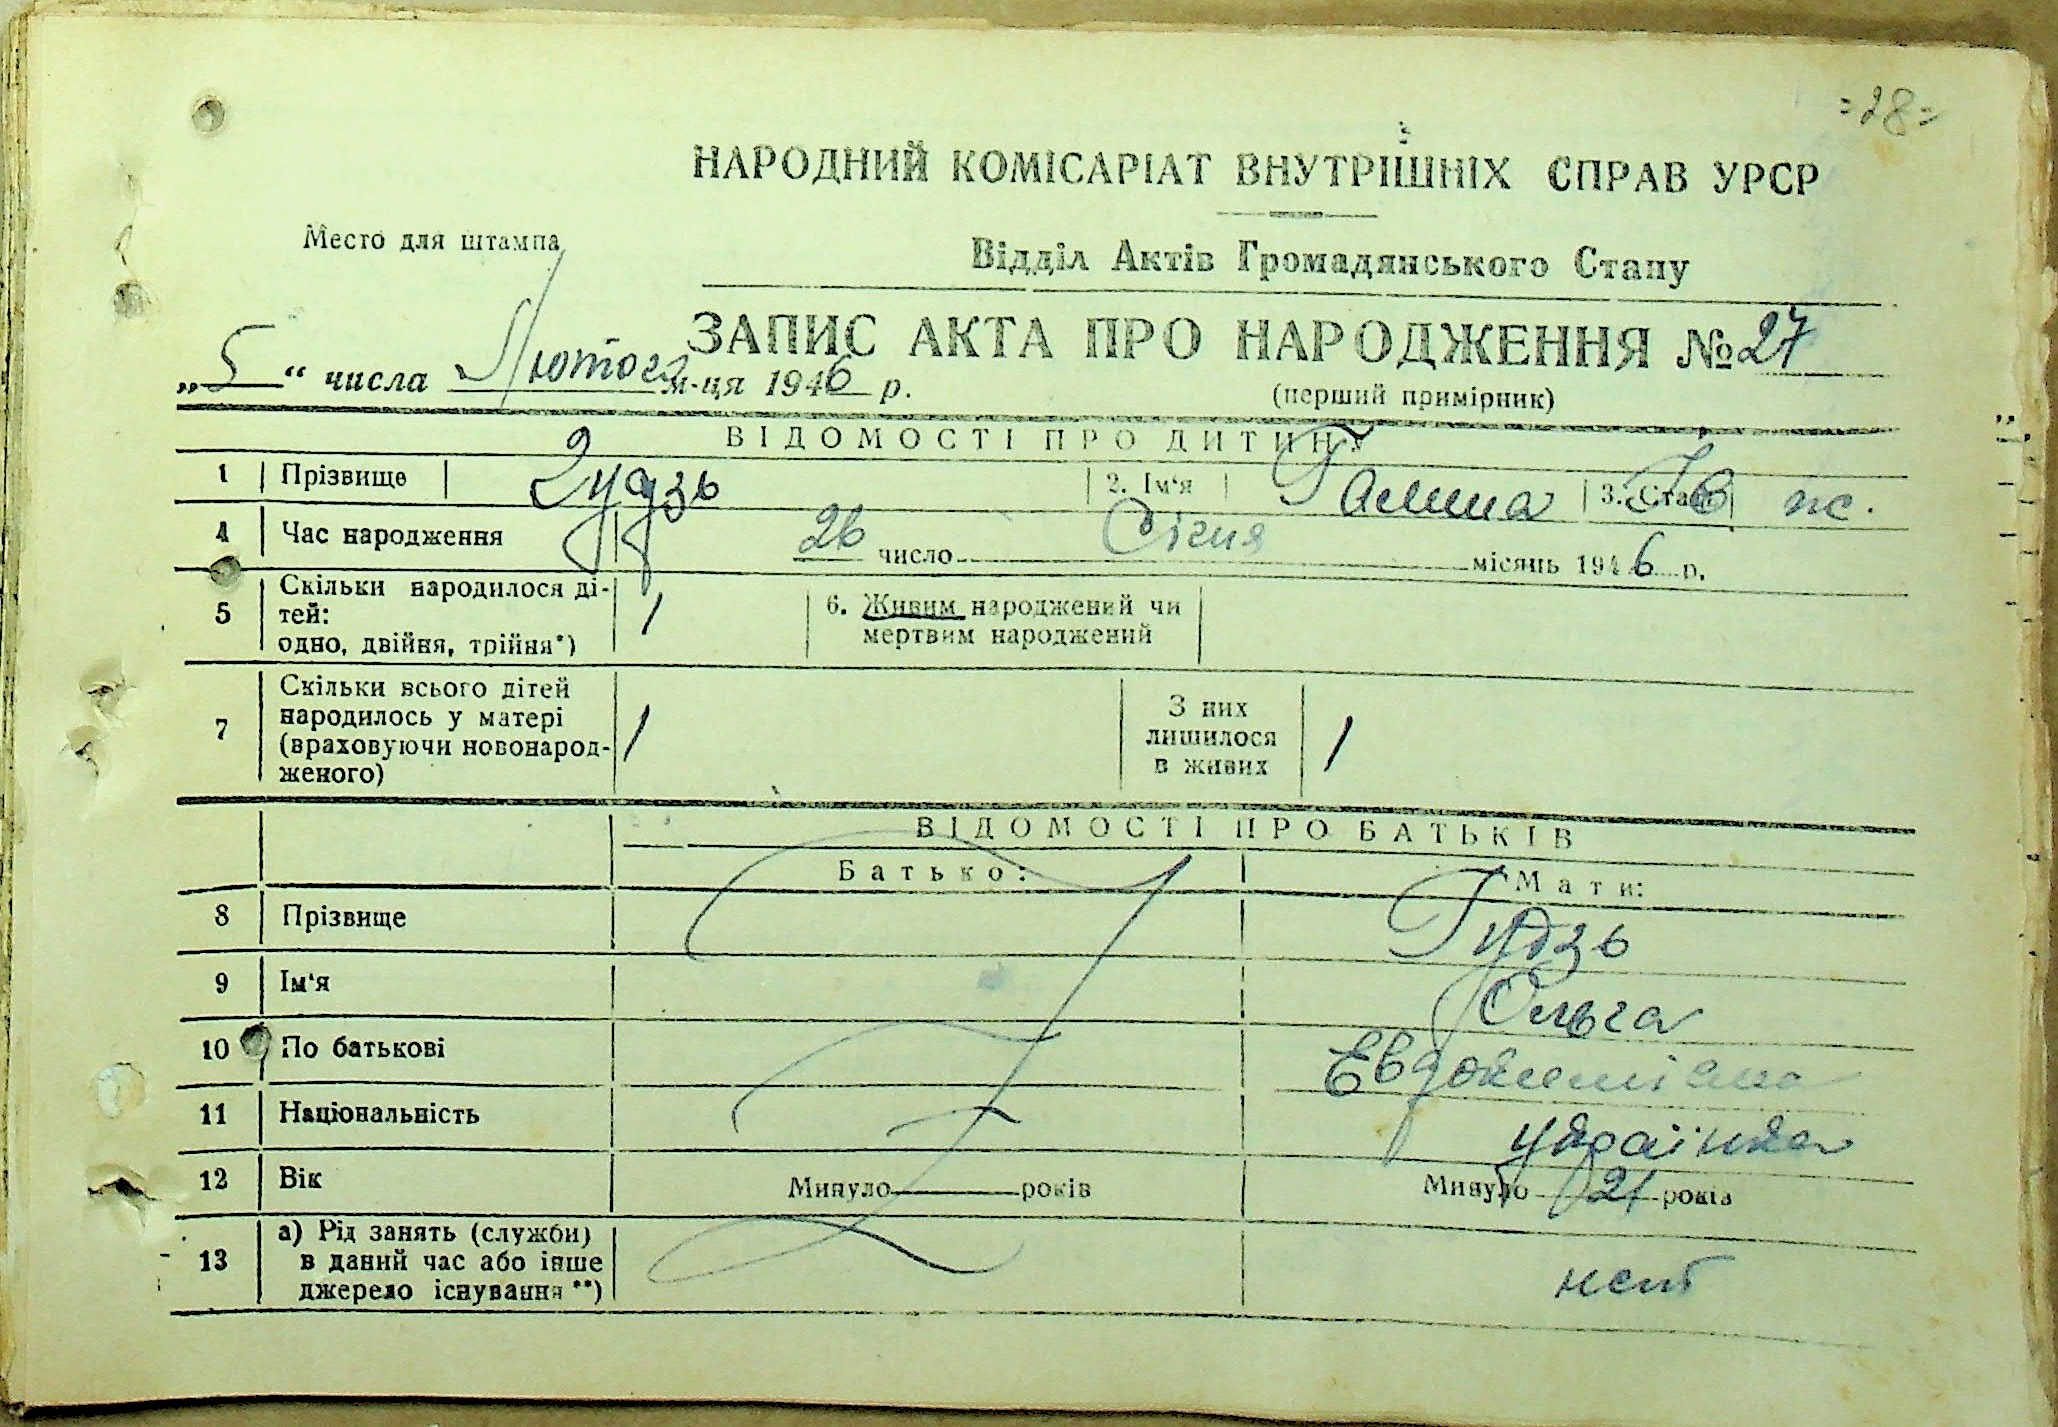 =28=
НАРОДНИЙ КОМІСАРІАТ ВНУТРІШНІХ СПРАВ УРСР
Место для штампа
Відділ Актів Громадянського Стану
ЗАПИС АКТА ПРО НАРОДЖЕННЯ № 27
„5“ числа Лютого м-ця 1946 р.
(перший примірник)
ВІДОМОСТІ ПРО ДИТИНУ
1 Прізвище Гудзь 2. Ім'я Галина Ів 3. Стать ж.
4 Час народження 26 число Січня місяць 1946 р.
5 Скільки народилося ді-
тей:
одно, двійня, трійня*) 1
6. Живим народжений чи
мертвим народжений
7 Скільки всього дітей
народилось у матері
(враховуючи новонарод-
женого) 1
З них
лишилося
в живих 1
ВІДОМОСТІ ПРО БАТЬКІВ
Батько: Мати:
8 Прізвище Гудзь
9 Ім'я Ольга
10 По батькові Евдокимівна
11 Національність українка
12 Вік Минуло років Минуло 21 років
13 а) Рід занять (служби)
в даний час або інше
джерело існування **) нет